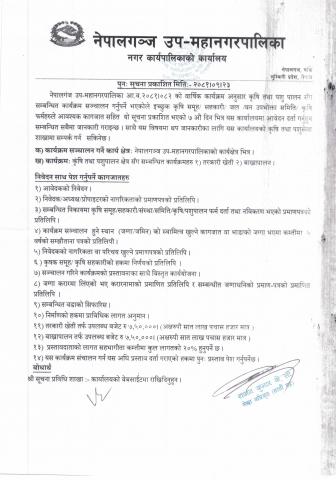 नेपालगञ्ज उप-महानगरपालिका
नगर कार्यपालिकाको कार्यालय
नेपालगञ्ज, बाँके
लुम्बिनी प्रदेश, नेपाल
पुनः सूचना प्रकाशित मितिः- २०८१।०९।२३
नेपालगंज उप-महानगरपालिका आ.व.२०८१।०८२ को वार्षिक कार्यक्रम अनुसार कृषि तथा पशु पालन सँग
सम्बन्धित कार्यक्रम सञ्चालन गर्नुपर्ने भएकोले इच्छुक कृषि समुह/ सहकारी/ जल वन उपभोक्ता समिति/ कृषि
फर्महरुले आवश्यक कागजात सहित यो सूचना प्रकाशित भएको ७ औं दिन भित्र यस कार्यालयमा आवेदन दर्ता गर्नुहुन
सम्बन्धित सबैमा जानकारी गराइन्छ। साथै यस विषयमा थप जानकारीका लागि यस कार्यालयको कृषि तथा पशुसेवा
शाखामा सम्पर्क गर्न सकिनेछ।
क) कार्यक्रम सञ्चालन गर्ने कार्य क्षेत्र: नेपालगञ्ज उप-महानगरपालिकाको कार्यक्षेत्र भित्र।
ख) कार्यक्रम: कृषि तथा पशुपालन क्षेत्र सँग सम्बन्धित कार्यक्रमहरु १) तरकारी खेती २) बाख्रापालन।
निवेदन साथ पेश गर्नुपर्ने कागजातहरु
१) आवेदकको निवेदन।
२) निवेदक/अध्यक्ष/प्रोपाइटरको नागरिकताको प्रमाणपत्रको प्रतिलिपि।
३) सम्बन्धित निकायमा कृषि समुह/सहकारी/संस्था/समिति/कृषि/पशुपालन फर्म दर्ता तथा नविकरण भएको प्रमाणपत्रको
प्रतिलिपि।
४) कार्यक्रम सञ्चालन हुने स्थान (जग्गा/जमिन) को स्वामित्व खुल्ने कागजात वा भाडाको जग्गा भएमा कम्तीमा ५
वर्षको सम्झौतानामा पत्रको प्रतिलिपी।
५) निवेदकको नागरिकता वा परिचय खुल्ने प्रमाणपत्रको प्रतिलिपि।
६) कृषक समूह/ कृषि सहकारीको हकमा निर्णयको प्रतिलिपि।
७) सञ्चालन गरिने कार्यक्रमको प्रस्तावनाका साथै विस्तृत कार्ययोजना।
८) जग्गा करारमा लिएको भए करारनामाको प्रमाणित प्रतिलिपि र सम्बन्धीत जग्गाधनिको प्रमाण-पत्रको प्रमाणित
प्रतिलिपि।
९) सम्बन्धित वडाको सिफारिस।
१०) निर्माणको हकमा प्राविधिक लागत अनुमान।
११) तरकारी खेती तर्फ उपलब्ध बजेट रु ७,५०,०००। (अक्षरुपी सात लाख पचास हजार मात्र।
१२) बाख्रापालन तर्फ उपलब्ध बजेट रु ७,५०,०००। (अक्षरुपी सात लाख पचास हजार मात्र।
१३) प्रस्तावदाताको लागत सहभागीता कम्तीमा कुल लागतको २०% हुनुपर्ने छ।
१४) यस कार्यक्रम संचालन गर्न यस अघि प्रस्ताव दर्ता गराएको हकमा पुनः प्रस्ताव पेश गर्नुपर्नेछ।
बोधार्थ
श्री सूचना प्रविधि शाखा :- कार्यालयको वेबसाईटमा राखिदिनुहुन।